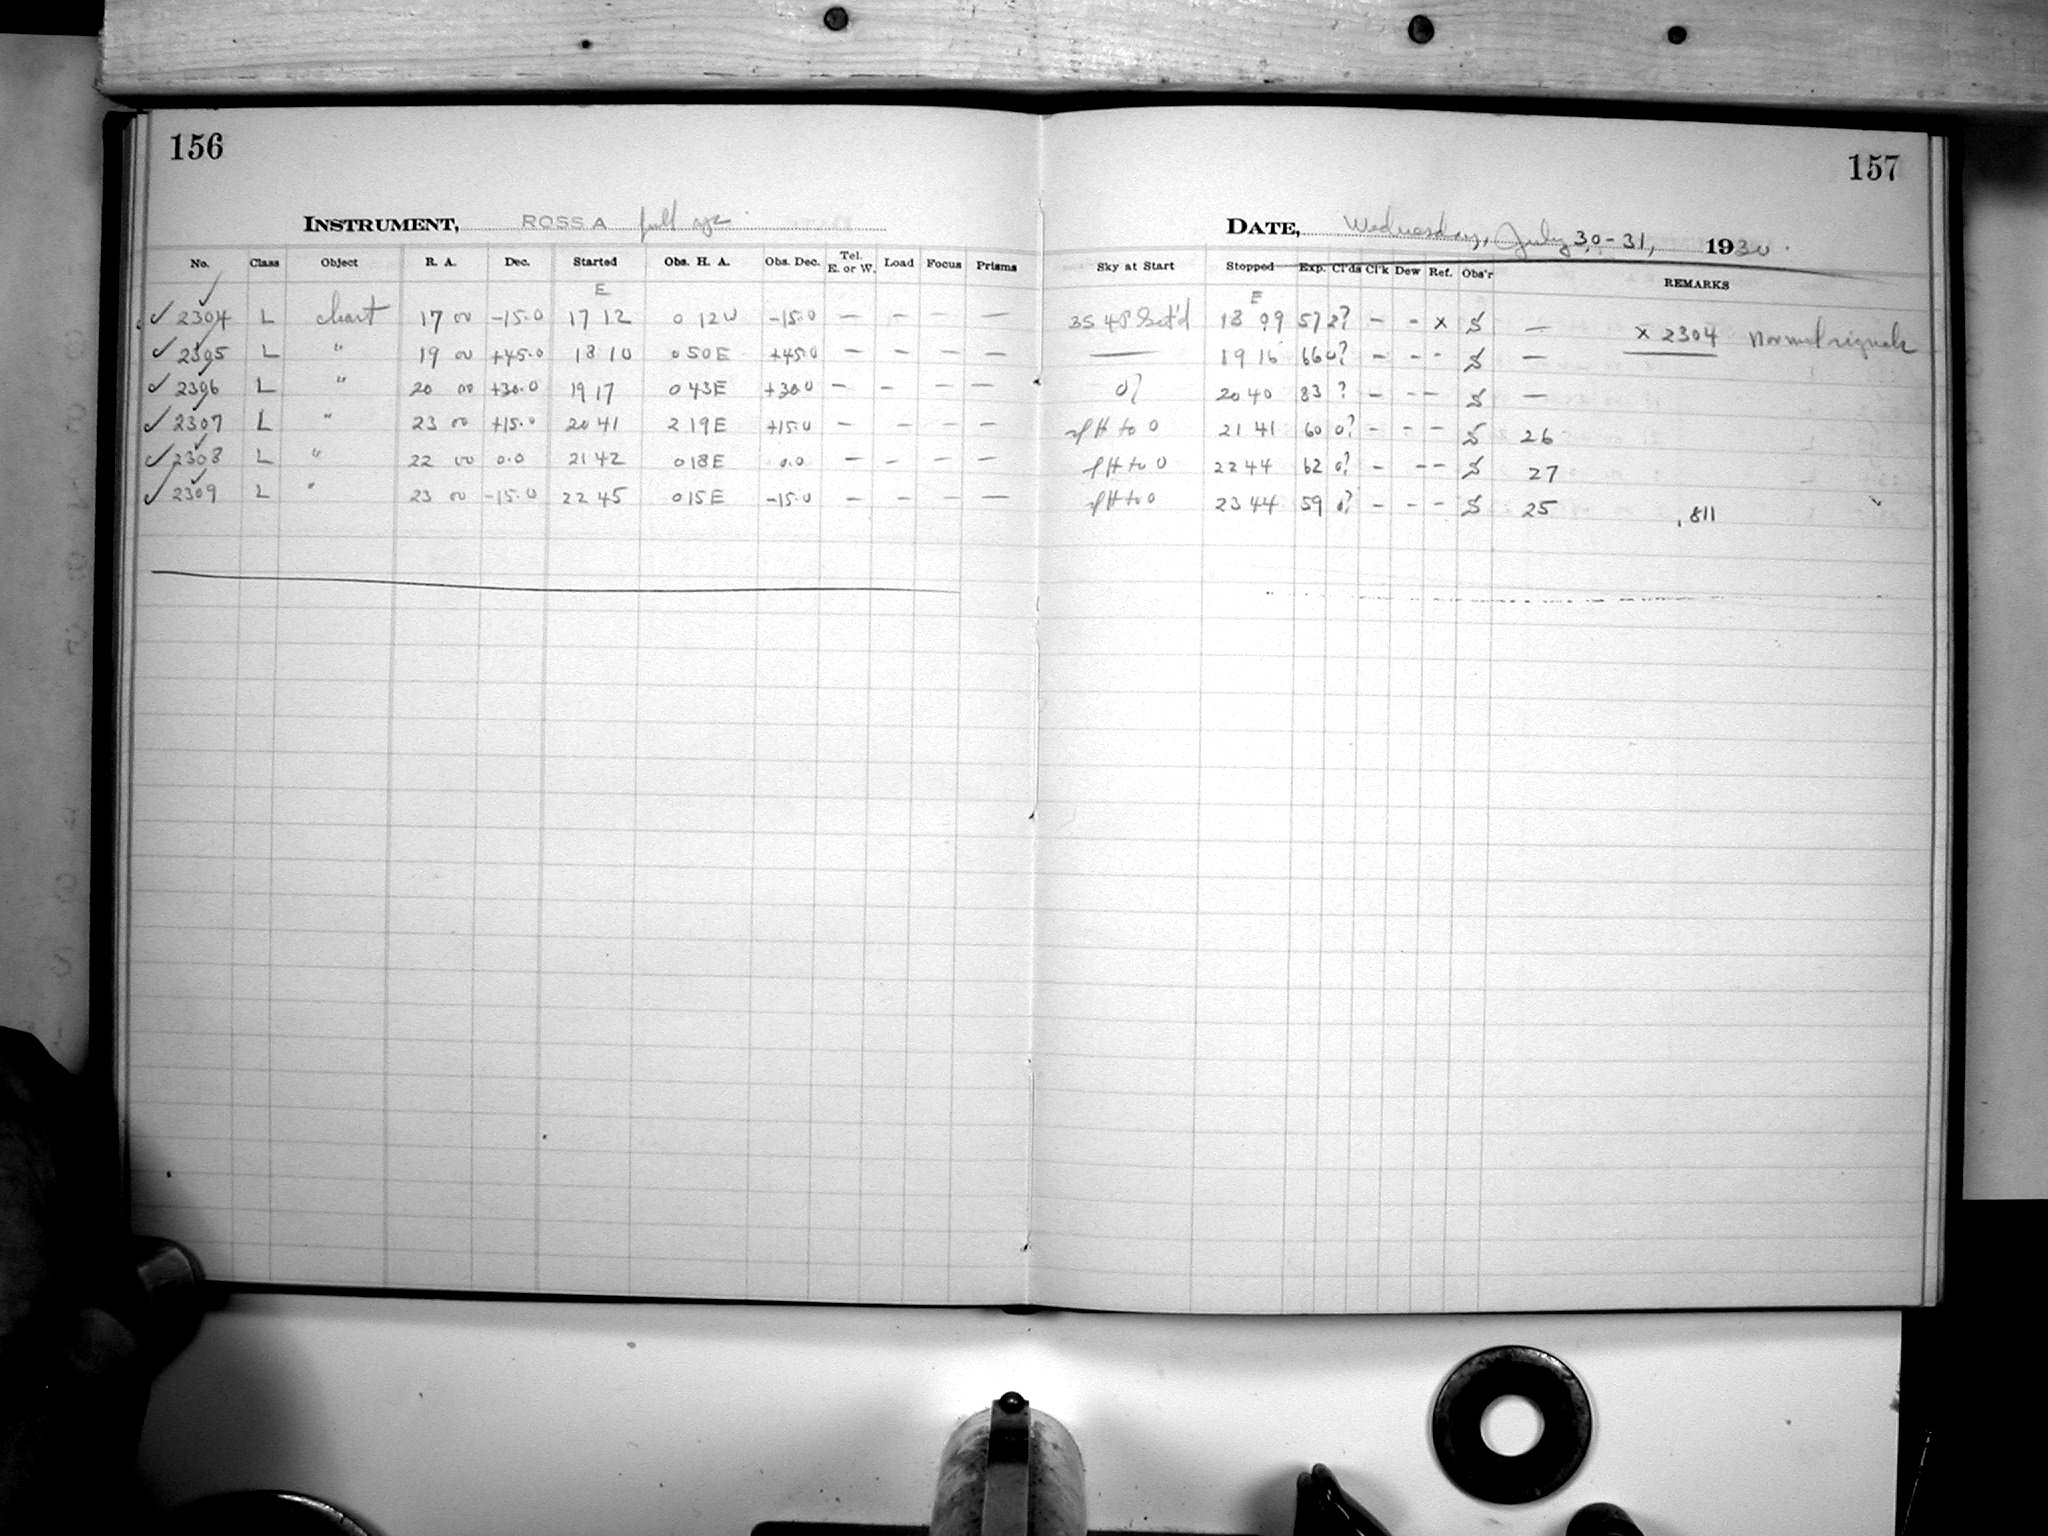 156
INSTRUMENT, ROSS A full
No. Class Object R. A. Dec. Started Obs. H. A. Obs. Dec. Tel. E. or W. Load Focus Prisms
E
✓ 2304 L chart 17 00 -15.0 17 12 0 12 W -15.0 — — — —
✓ 2305 L " 19 00 +45.0 18 10 0 50 E +45.0 — — — —
✓ 2306 L " 20 00 +30.0 19 17 0 43 E +30.0 — — — —
✓ 2307 L " 23 00 +15.0 20 41 2 19 E +15.0 — — — —
✓ 2308 L " 22 00 0.0 21 42 0 18 E 0.0 — — — —
✓ 2309 L " 23 00 -15.0 22 45 0 15 E -15.0 — — — —
157
DATE, Wednesday, July 30-31, 1930.
Sky at Start Stopped Exp. Cl'ds Cl'k Dew Ref. Obs'r REMARKS
E
18 09 57 2? — - x S — x 2304 Normal signals
— 19 16 66 0? — - - S —
0? 20 40 83 ? — - — S —
to 0 21 41 60 0? - - — S 26
to 0 22 44 62 0? - - - S 27
to 0 23 44 59 0? - - - S 25 .811